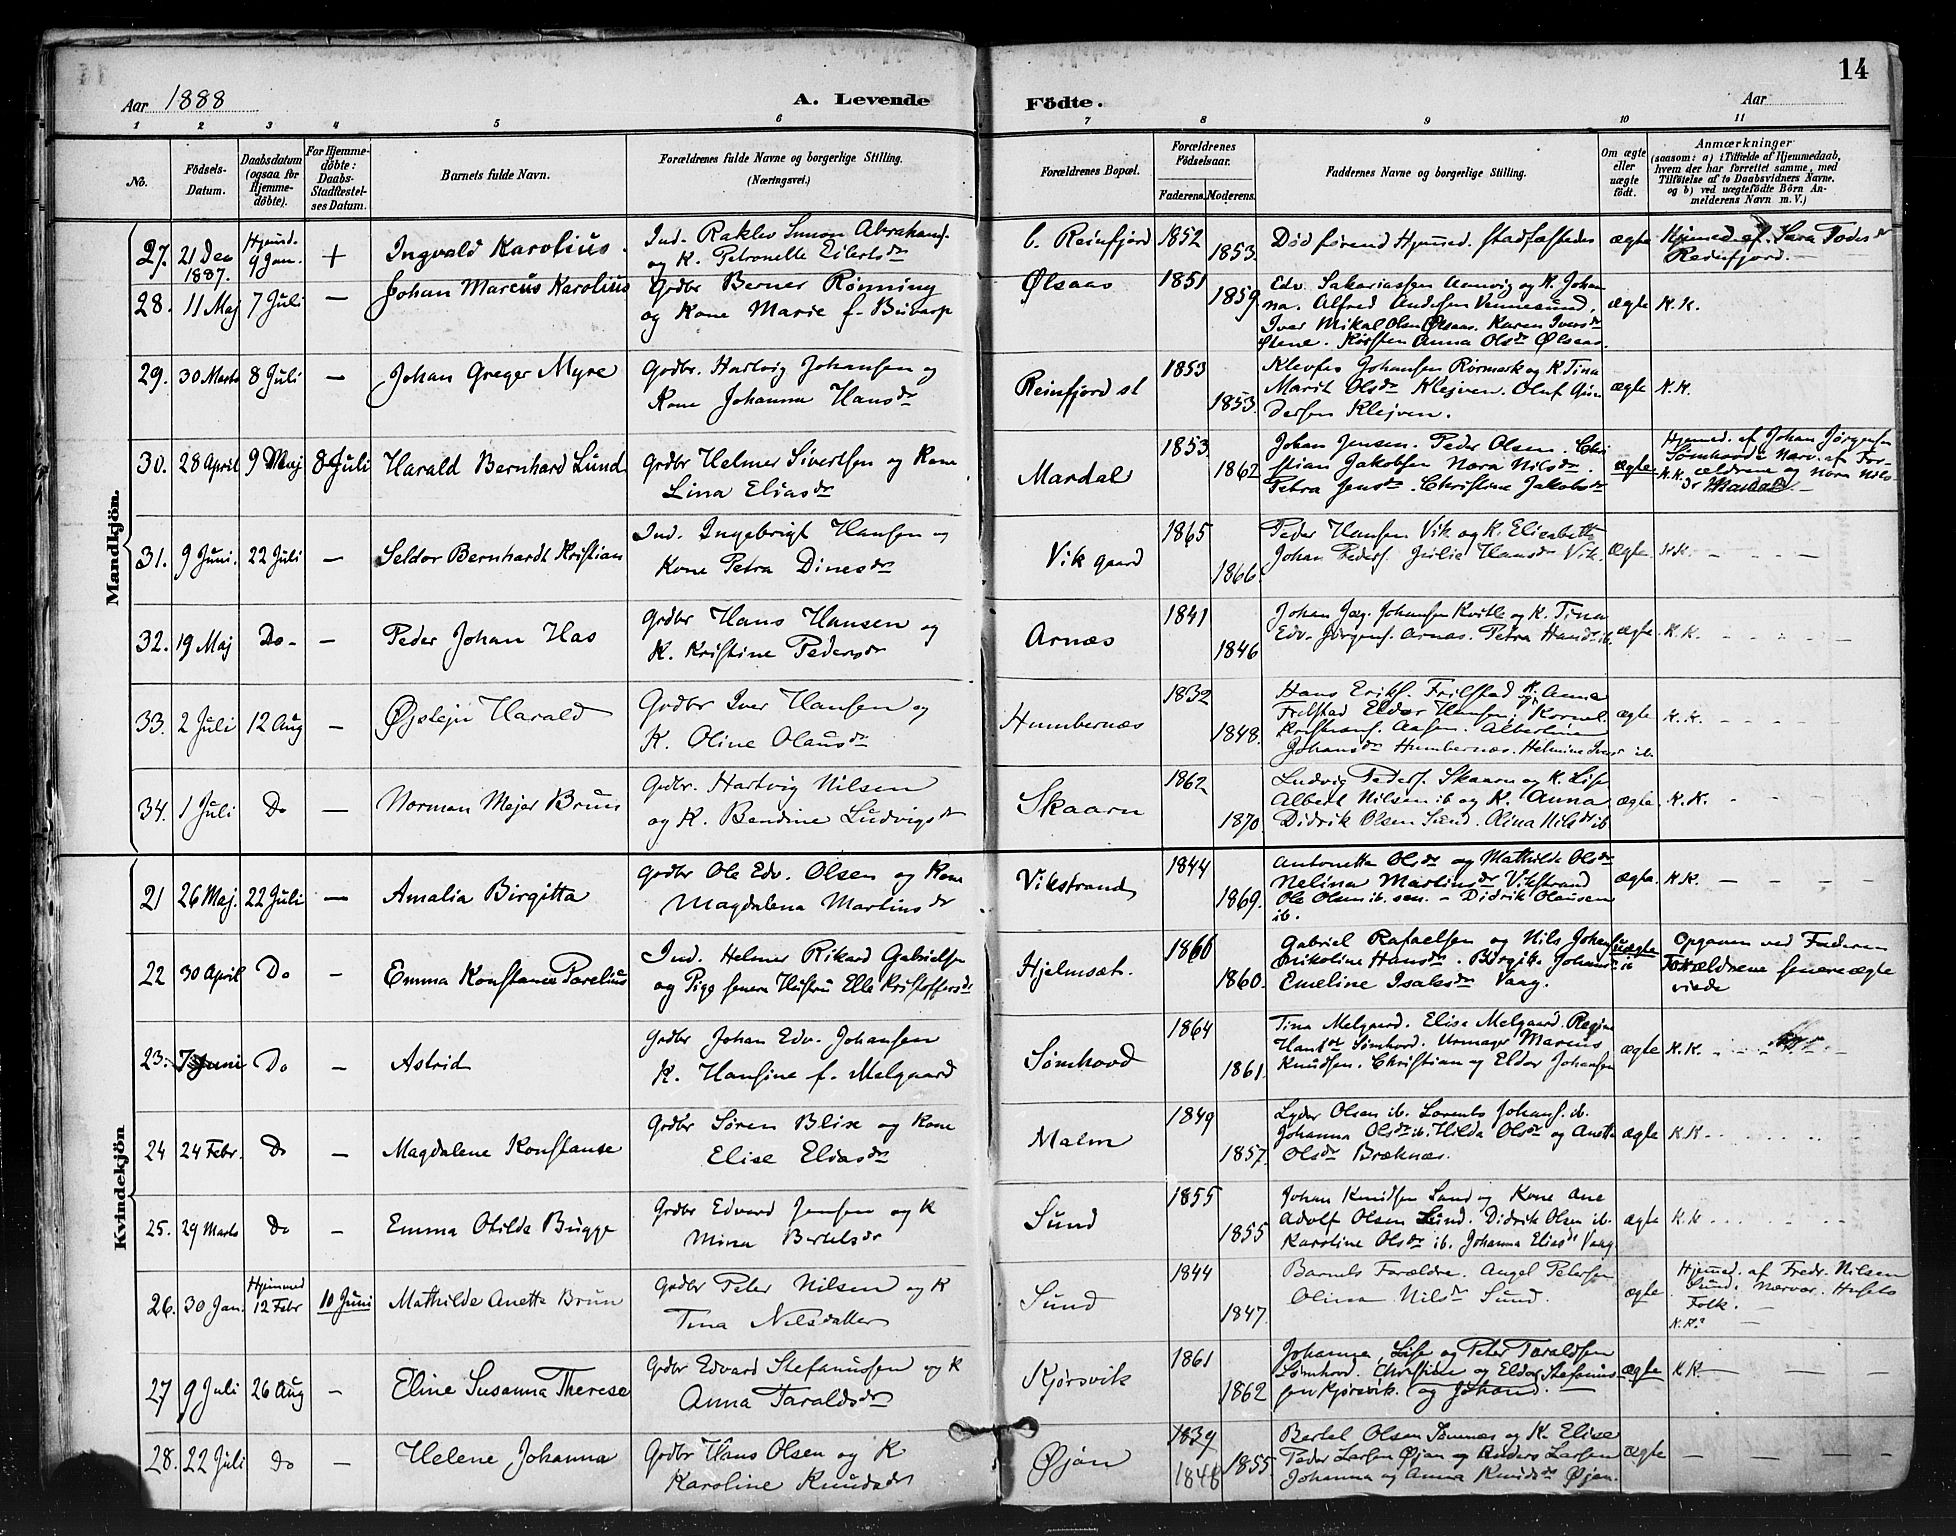 14
Aar 1888
A. Levende Födte.
Aar
1 2 3 4 5 6 7 8 9 10 11
No.
Födsels-Datum.
Daabsdatum (ogsaa for Hjemme-döbte).
For Hjemme-döbte: Daabs-Stadfæstel-ses Datum.
Barnets fulde Navn.
Forældrenes fulde Navne og borgerlige Stilling. (Næringsvei.)
Forældrenes Bopæl.
Forældrenes Födselsaar.
Faderens. Moderens.
Faddernes Navne og borgerlige Stilling.
Om ægte eller uægte födt.
Anmærkninger
(saasom: a) i Tilfælde af Hjemmedaab,
hvem der har forrettet samme, med
Tilföielse af to Daabsvidners Navne.
og b) ved uægtefödte Börn An-
melderens Navn m. V.)
Mandkjön.
27. 21 Dec 1887. Hjemd. 9 Jan. + Ingvald Karolius.
Ind. Rakley Simon Abrahams.
og K. Petronelle Eilertsdr
b. Reinfjord 1852 1853. Død førend Hjemmed. stadfæstedes ægte
Hjemmed. af Sara
Reinfjord. —
28. 11 Maj 7 Juli — Johan Marcus Karolius
Grdbr Berner Rönning
og Kone Marie f. Buvarp
Ølsaas 1851 1859
Edv. Sakariassen Aunvig og K. Johan
na. Alfred Andersen Vennesund.
Iver Mikal Olsen Ølsaas. Karen Iversdr
Stene. Kirsten Anna Olsdr Ølsaas.
ægte K. K.
29. 30 Marts 8 Juli — Johan Greger Myre
Grdbr. Hartvig Johansen og
Kone Johanna Hansdr
Reinfjord st 1853 1853.
Klevfas Johansen Rörmark og K Tina
Marit Olsdr Klejven. Oluf Gun
dersen Klejven.
ægte K. K.
30. 28 April 9 Maj 8 Juli Harald Bernhard Lund
Grdbr Helmer Sivertsen og Kone
Lina Eliasdr
Mardal 1853 1862
Johan Jensen. Peder Olsen. Chri
stian Jakobsen Nora Nilsdr.
Petra Jensdr. Christine Jakobsdr
ægte
Hjemmed. af Johan Jörgensen
Sømhovd. Nærv. af For-
K.K. ældrene og Nora Nils
dr Mardal. —
31. 9 Juni. 22 Juli — Seldor Bernhardt Kristian
Ind. Ingebrigt Hansen og
Kone Petra Dinesdr
Vik gaard 1865 1866
Peder Hansen Vik og K. Elisabeth
Johan Peders. Julie Hansdr Vik.
ægte K K. — — — —
32. 19 Maj Do — Peder Johan Has
Grdbr Hans Hansen og
K. Kristine Pedersdr
Arnæs 1841 1846
Johan Jæg. Johansen Kvitle og K. Tina
Edv. Jørgens. Arnæs. Petra Hansdr ib.
ægte K. K.
33. 2 Juli 12 Aug — Øjstejn Harald
Grdbr Iver Hansen og
K. Oline Olausdr
Humbernæs 1832 1848.
Hans Eriks. Frilstad og K. Anna
Frilstad Eldor Hansen, Kornel.
Kristians. Aasen. Albertine
Johansdr Humbernæs. Helmine Ivers ib.
ægte K. K.
34. 1 Juli Do — Norman Mejer Brun
Grdbr. Hartvig Nilsen
og K. Bendine Ludvigsdr
Skaarn 1862 1870.
Ludvig Peders. Skaarn og K. Lise
Albert Nilsen ib og K. Anna
Didrik Olsen Sund. Olina Nilsdr ib
ægte K. K.
Kvindekjön
21 26 Maj. 22 Juli — Amalia Birgitta
Grdbr Ole Edv. Olsen og Kone
Magdalena Martinsdr
Vikstrand 1844 1869.
Antonetta Olsdr og Mathilde Olsdr
Nelina Martinsdr Vikstrand
Ole Olsen ib. sen. — Didrik Olausen
ib.
ægte. K K. — — — —
22 30 April Do — Emma Konstance Parelius
Ind. Helmer Rikard Gabrielsen
og Pige senere Hustru Elle Kristoffersdr
Hjelmsæt. 1866 1860.
Gabriel Rafaelsen og Nils Johans
Nikoline Hansdr. Birgitte Johansdr ib
Emeline Isaksdr Vaag.
uægte
Opgaven ved Faderen
Forældrene senere ægte
viede
23. 7 Juni Do — Astrid
Grdbr Johan Edv. Johansen
K. Hansine f. Melgaard
Sømhovd 1864 1861.
Tina Melgaard. Elise Melgaard. Regine
Hansdr Sømhovd. Urmager Marcus
Knudsen. Christian og Eldor Johansen
ægte K. K.
24 24 Febr. Do — Magdalene Konstanse
Grdbr Søren Blix og Kone
Elise Eliasdr
Malm 1849 1857.
Lyder Olsen ib. Lorents Johans. ib.
Johanna Olsdr ib. Hilda Olsdr og Anette
Olsdr Bræknæs.
ægte K K.
25. 29 Marts Do — Emma Otilde Bugge
Grdbr Edvard Jensen og K
Mina Bertelsdr
Sund 1855 1855
Johan Knudsen Sund og Kone Ane
Adolf Olsen Sund. Didrik Olsen ib.
Karoline Olsdr ib. Johanna Eliasdr Vaag.
ægte K. K.
26. 30 Jan. Hjemmed 12 Febr 10 Juni Mathilde Anette Brun
Grdbr Peter Nilsen og K
Tina Nilsdatter
Sund 1844 1847.
Barnets Forældre. Angel Petersen
Olina Nilsdr Sund.
ægte
Hjemmed. af Fredr. Nilsen
Sund. Nærvær. Husets
Folk. —
K. K. —
27 9 Juli 26 Aug — Eline Susanna Therese
Grdbr Edvard Stefanussen og K
Anna Taraldsdr
Kjørsvik 1861 1862
Johanna, Lise og Peter Taraldsen
Sømhovd. Christine og Eldor Stefanus-
sen Kjørsvik. og Johand. —
ægte K K — — —
28. 22 Juli Do — Helene Johanna
Grdbr Hans Olsen og K
Karoline Knudsdr
Øjan 1839 1848 1855.
Bertel Olsen Sømnæs og K. Elise
Peder Larsen Øjan og Anders Larsen
Johanna og Anna Knudsdr Øjan.
ægte — — — —